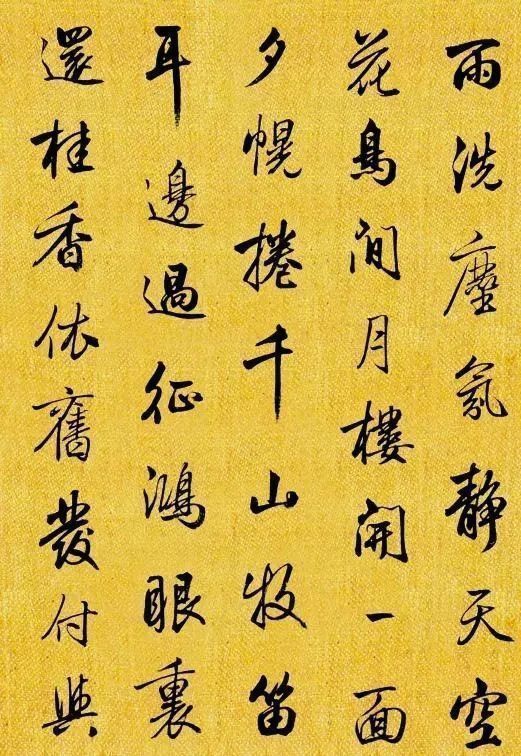 雨洗塵氛靜天空
花鳥閒月樓開一面
夕幌捲千山牧笛
耳邊過征鴻眼裏
還桂香依舊發付與